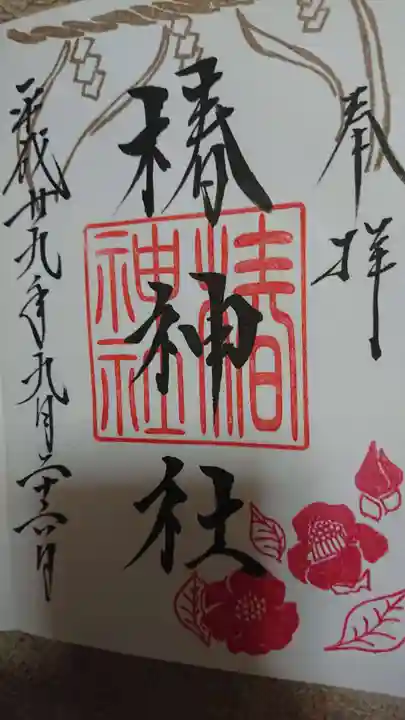 奉拝
椿神社
椿神社
平成廿九年九月二十六日